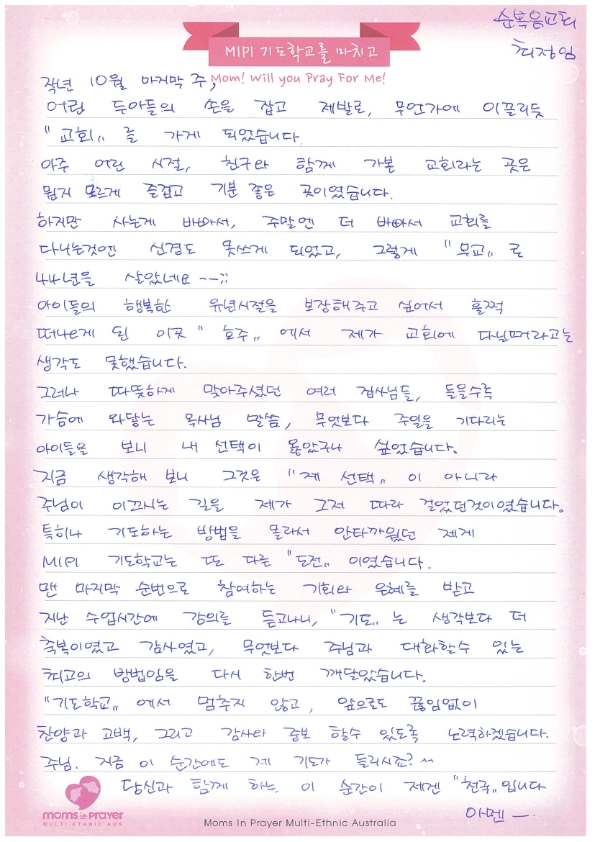 순복음교회
최정임
MIPI 기도학교를 마치고
Mom! Will you Pray For Me!
작년 10월 마지막 주,
어린 두아들의 손을 잡고 제발로, 무언가에 이끌리듯
"교회" 를 가게 되었습니다.
아주 어린 시절, 친구와 함께 가본 교회라는 곳은
뭔지 모르게 즐겁고 기분 좋은 곳이였습니다.
하지만 사는게 바빠서, 주말엔 더 바빠서 교회를
다니는것엔 신경도 못쓰게 되었고, 그렇게 "무교" 로
44년을 살았네요 --;;
아이들의 행복한 유년시절을 보장해주고 싶어서 훌쩍
떠나오게 된 이곳 "호주" 에서 제가 교회에 다닐꺼라고는
생각도 못했습니다.
그러나 따뜻하게 맞아주셨던 여러 집사님들, 들을수록
가슴에 와닿는 목사님 말씀, 무엇보다 주일을 기다리는
아이들을 보니 내 선택이 옳았구나 싶었습니다.
지금 생각해 보니 그것은 "제 선택" 이 아니라
주님이 이끄시는 길을 제가 그저 따라 걸었던것이였습니다.
특히나 기도하는 방법을 몰라서 안타까웠던 제게
MIPI 기도학교는 또 다른 "도전" 이였습니다.
맨 마지막 순번으로 참여하는 기회와 은혜를 받고
지난 수업시간에 강의를 듣고나니, "기도" 는 생각보다 더
축복이였고 감사였고, 무엇보다 주님과 대화할수 있는
최고의 방법임을 다시 한번 깨달았습니다.
"기도학교" 에서 멈추지 않고, 앞으로도 끊임없이
찬양과 고백, 그리고 감사와 중보 할수 있도록 노력하겠습니다.
주님. 지금 이 순간에도 제 기도가 들리시죠? ~
당신과 함께 하는 이 순간이 제겐 "천국" 입니다
아멘 —
moms in prayer
MULTI-ETHNIC AUS
Moms In Prayer Multi-Ethnic Australia